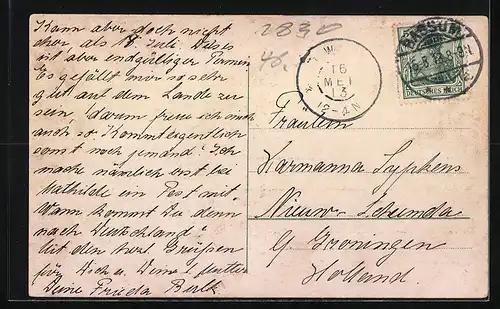 Kann aber doch nicht
eher, als 18. Juli. Dieses
ist aber endgültiger Termin.
Es gefällt mir so sehr
gut auf dem Lande zu
sein, darum freue ich mich
auch so. Kommt eigentlich
sonst noch jemand? Ich
mache nämlich erst bei
Mathilde ein Fest mit.
Wann kommst Du denn
nach Deutschland?
Mit den herzl. Grüßen
für Dich u. Deine Mutter
Deine Frieda
2830
48.
16
MEI
13
12-4N
DEUTSCHES REICH
Fräulein
Harmanna Sypkens
Nieuw-Scheemda
Groningen
Holland.